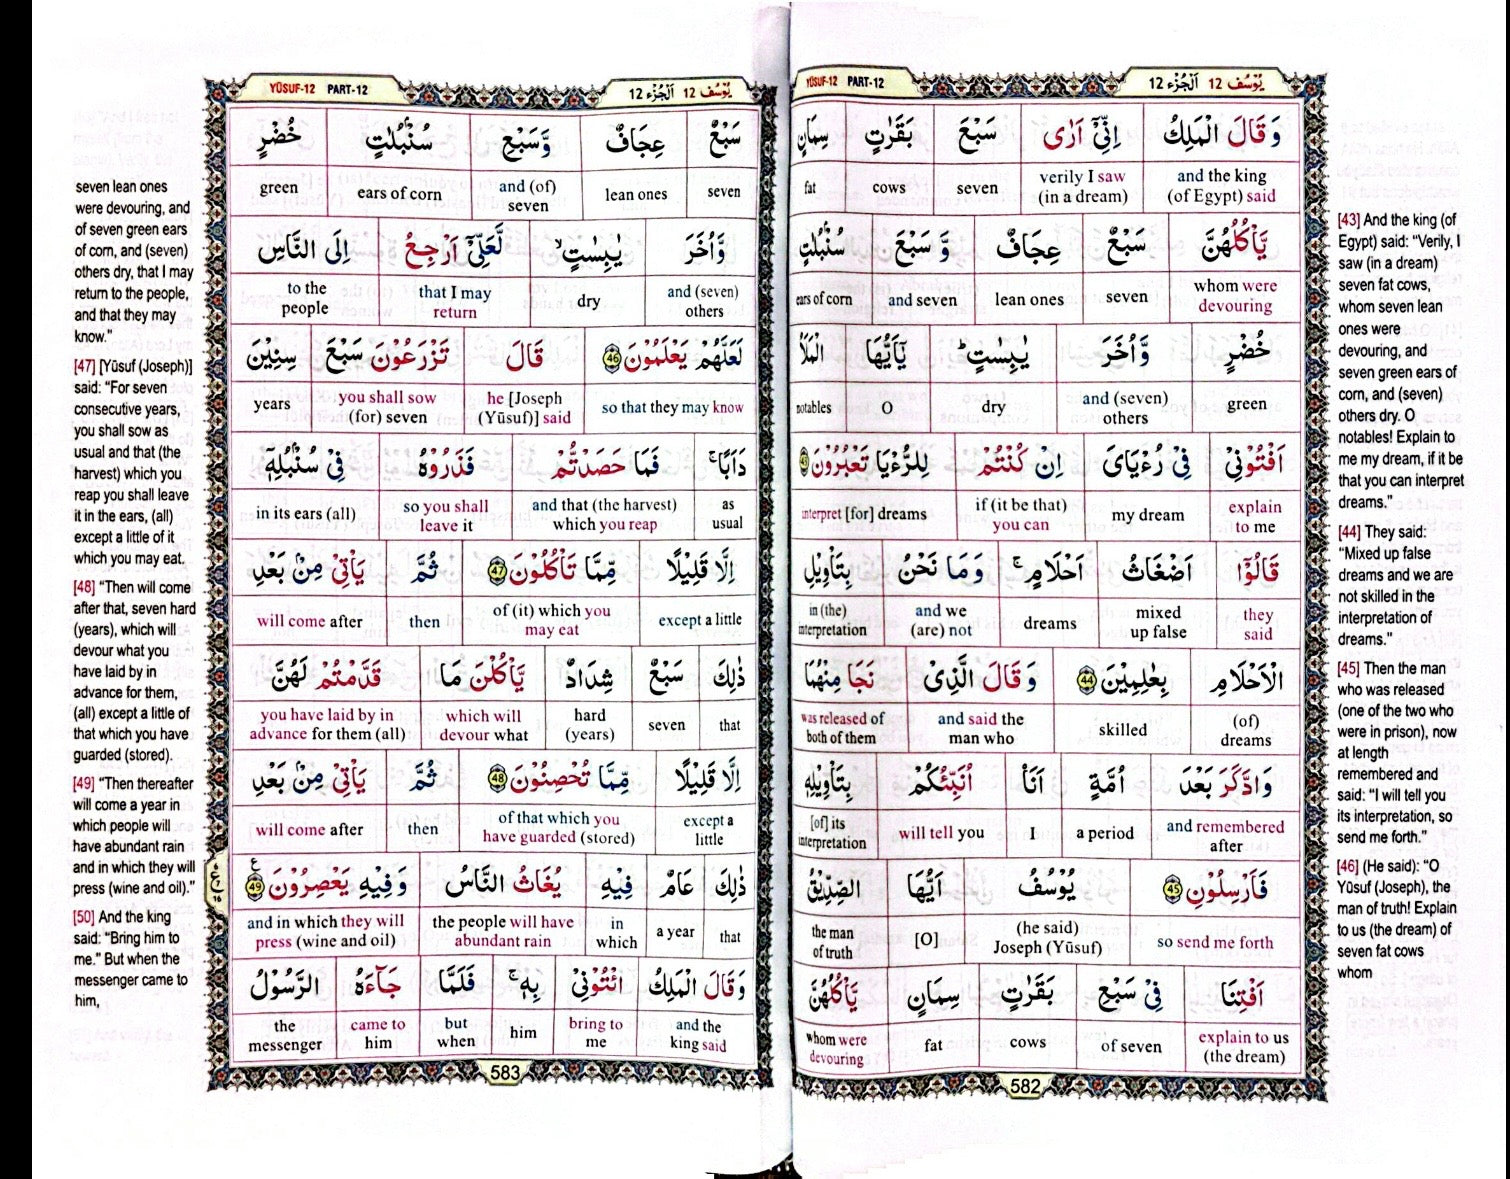 YŪSUF-12 PART-12
يُوْسُف 12 اَلْجُزْء 12
وَقَالَ الْمَلِكُ اِنِّيْٓ اَرٰى سَبْعَ بَقَرٰتٍ سِمَانٍ
and the king (of Egypt) said verily I saw (in a dream) seven cows fat
يَّاْكُلُهُنَّ سَبْعٌ عِجَافٌ وَّ سَبْعَ سُنْۢبُلٰتٍ
whom were devouring seven lean ones and seven ears of corn
خُضْرٍ وَّاُخَرَ يٰبِسٰتٍ ؕ يٰٓاَيُّهَا الْمَلَاُ
green and (seven) others dry O notables
اَفْتُوْنِيْ فِيْ رُءْيَايَ اِنْ كُنْتُمْ لِلرُّءْيَا تَعْبُرُوْنَ 43
explain to me my dream if (it be that) you can interpret [for] dreams
قَالُوْٓا اَضْغَاثُ اَحْلَامٍ ۚ وَمَا نَحْنُ بِتَاْوِيْلِ
they said mixed up false dreams and we (are) not in (the) interpretation
الْاَحْلَامِ بِعٰلِمِيْنَ 44 وَقَالَ الَّذِيْ نَجَا مِنْهُمَا
(of) dreams skilled and said the man who was released of both of them
وَادَّكَرَ بَعْدَ اُمَّةٍ اَنَا۠ اُنَبِّئُكُمْ بِتَاْوِيْلِهٖ
and remembered after a period I will tell you [of] its interpretation
فَاَرْسِلُوْنِ 45 يُوْسُفُ اَيُّهَا الصِّدِّيْقُ
so send me forth (he said) Joseph (Yūsuf) [O] the man of truth
اَفْتِنَا فِيْ سَبْعِ بَقَرٰتٍ سِمَانٍ يَّاْكُلُهُنَّ
explain to us (the dream) of seven cows fat whom were devouring
582
[43] And the king (of
Egypt) said: “Verily, I
saw (in a dream)
seven fat cows,
whom seven lean
ones were
devouring, and
seven green ears of
corn, and (seven)
others dry. O
notables! Explain to
me my dream, if it be
that you can interpret
dreams.”
[44] They said:
“Mixed up false
dreams and we are
not skilled in the
interpretation of
dreams.”
[45] Then the man
who was released
(one of the two who
were in prison), now
at length
remembered and
said: “I will tell you
its interpretation, so
send me forth.”
[46] (He said): “O
Yūsuf (Joseph), the
man of truth! Explain
to us (the dream) of
seven fat cows
whom
YŪSUF-12 PART-12
يُوْسُف 12 اَلْجُزْء 12
سَبْعٌ عِجَافٌ وَّسَبْعِ سُنْۢبُلٰتٍ خُضْرٍ
seven lean ones and (of) seven ears of corn green
وَّاُخَرَ يٰبِسٰتٍ ۙ لَّعَلِّيْٓ اَرْجِعُ اِلَى النَّاسِ
and (seven) others dry that I may return to the people
لَعَلَّهُمْ يَعْلَمُوْنَ 46 قَالَ تَزْرَعُوْنَ سَبْعَ سِنِيْنَ
so that they may know he [Joseph (Yūsuf)] said you shall sow (for) seven years
دَاَبًا ۚ فَمَا حَصَدْتُّمْ فَذَرُوْهُ فِيْ سُنْۢبُلِهٖٓ
as usual and that (the harvest) which you reap so you shall leave it in its ears (all)
اِلَّا قَلِيْلًا مِّمَّا تَاْكُلُوْنَ 47 ثُمَّ يَاْتِيْ مِنْۢ بَعْدِ
except a little of (it) which you may eat then will come after
ذٰلِكَ سَبْعٌ شِدَادٌ يَّاْكُلْنَ مَا قَدَّمْتُمْ لَهُنَّ
that seven hard (years) which will devour what you have laid by in advance for them (all)
اِلَّا قَلِيْلًا مِّمَّا تُحْصِنُوْنَ 48 ثُمَّ يَاْتِيْ مِنْۢ بَعْدِ
except a little of that which you have guarded (stored) then will come after
ذٰلِكَ عَامٌ فِيْهِ يُغَاثُ النَّاسُ وَفِيْهِ يَعْصِرُوْنَ 49
that a year in which the people will have abundant rain and in which they will press (wine and oil)
وَقَالَ الْمَلِكُ ائْتُوْنِيْ بِهٖ ۚ فَلَمَّا جَآءَهُ الرَّسُوْلُ
and the king said bring to me him but when came to him the messenger
583
seven lean ones
were devouring, and
of seven green ears
of corn, and (seven)
others dry, that I may
return to the people,
and that they may
know.”
[47] [Yūsuf (Joseph)]
said: “For seven
consecutive years,
you shall sow as
usual and that (the
harvest) which you
reap you shall leave
it in the ears, (all)
except a little of it
which you may eat.
[48] “Then will come
after that, seven hard
(years), which will
devour what you
have laid by in
advance for them,
(all) except a little of
that which you have
guarded (stored).
[49] “Then thereafter
will come a year in
which people will
have abundant rain
and in which they will
press (wine and oil).”
[50] And the king
said: “Bring him to
me.” But when the
messenger came to
him,